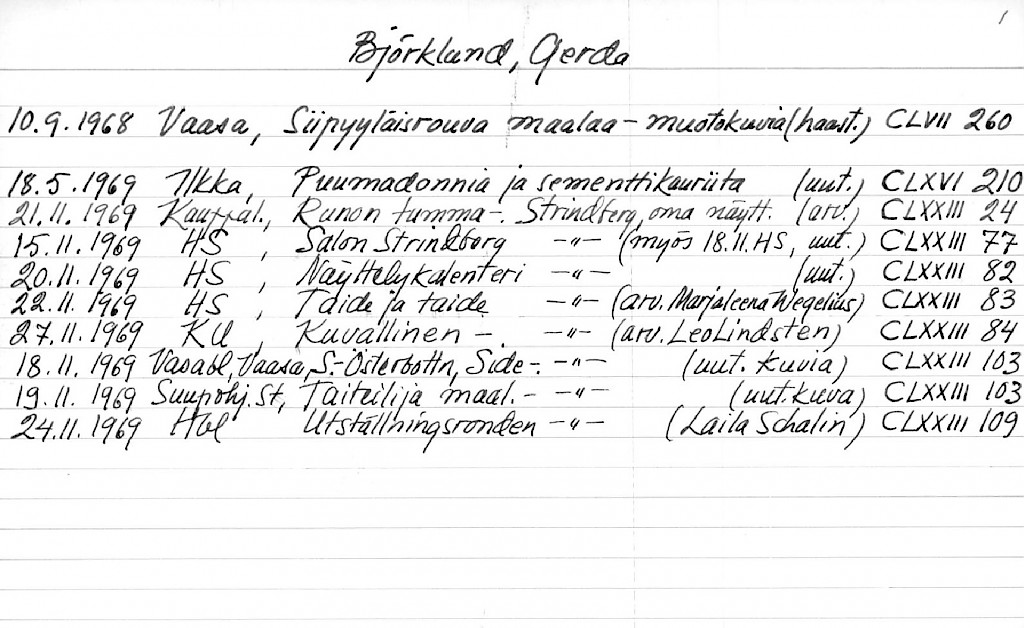 1
Björklund, Gerda
10.9.1968 Vaasa, Siipyyläisrouva maalaa – muotokuvia (haast.) CLVII 260
18.5.1969 Ilkka, Puumadonnia ja sementtikauriita (uut.) CLXVI 210
21.11.1969 Kauppal., Runon tumma –. Strindberg, oma näytt. (arv.) CLXXIII 24
15.11.1969 HS, Salon Strindberg –"– (myös 18.11. HS, uut.) CLXXIII 77
20.11.1969 HS, Näyttelykalenteri –"– (uut.) CLXXIII 82
22.11.1969 HS, Taide ja taide –"– (arv. Marjaleena Wegelius) CLXXIII 83
27.11.1969 KU, Kuvallinen –. –"– (arv. Leo Lindsten) CLXXIII 84
18.11.1969 Vasabl, Vaasa, S.-Österbottn, Side-. –"– (uut. kuvia) CLXXIII 103
19.11.1969 Suupohj. St, Taiteilija maal. – –"– (uut. kuva) CLXXIII 103
24.11.1969 Hbl Utställningsronden –"– (Laila Schalin) CLXXIII 109